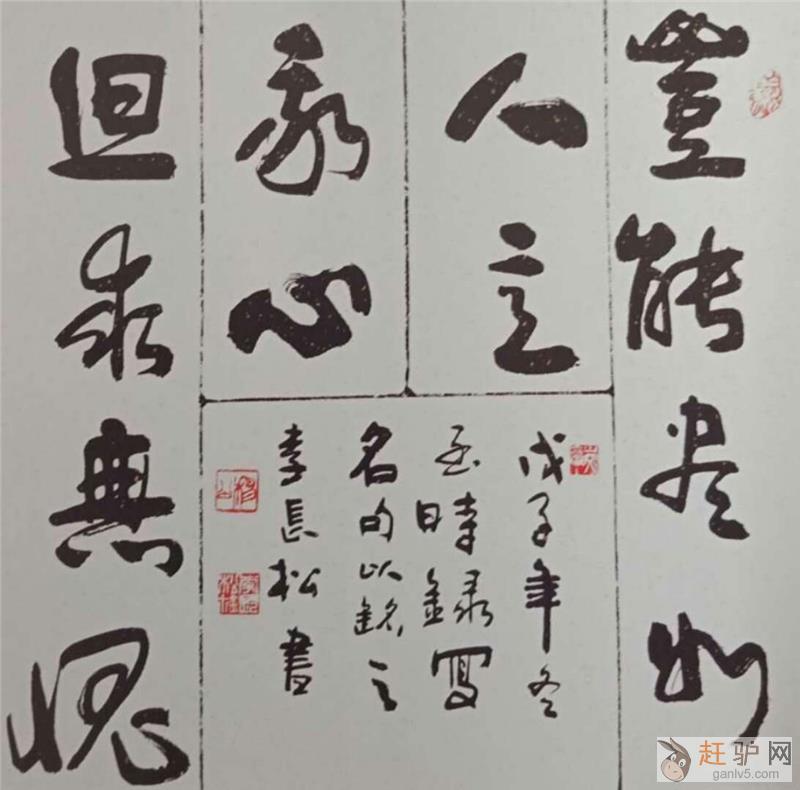 豈能盡如
人意
但求無愧
我心
戊子年冬
至時錄寫
名句以銘之
李長松書
赶驴网
ganlv5.com